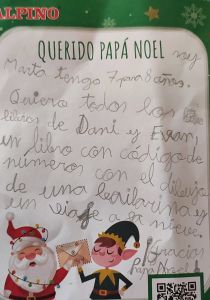 ALPINO
QUERIDO PAPÁ NOEL soy
Marta tengo 7 para 8 años.
Quiero todos los
libros de Dani y Evan,
un libro con código de
números con el dibujo
de una bailarina y
un viaje a la nieve.
¡Gracias
Papá Noel!